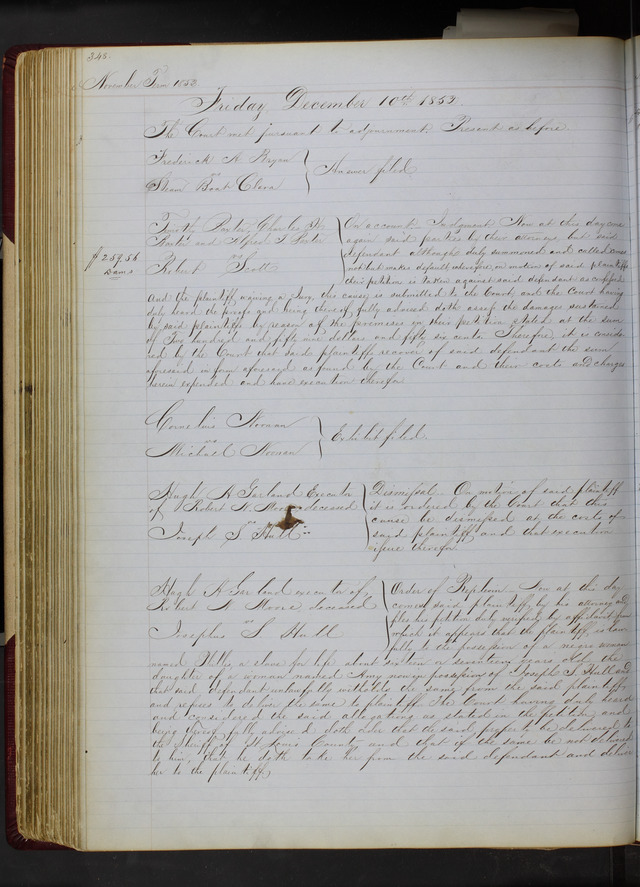 346.
November Term 1853
Friday, December 10th 1853.
The Court met pursuant to adjournment. Present as before.
Frederick A. Bryan
vs
Steam Boat Clara
Answer filed
Porter, Charles
Porter and Alfred Porter
vs
Robert Scott
$259.56
Dams
On account. Judgment. Now at this day come
again said parties by their attorneys but said
defendant although duly summoned and called comes
not but makes default wherefore on motion of said plaintiffs
their petition is taken against said defendant as confessed
And the plaintiffs waiving a Jury, the cause is submitted to the Court, and the Court having
duly heard the proofs and being thereof fully advised doth assess the damages sustained
by said plaintiffs by reason of the premises in their petition stated at the sum
of Two hundred and fifty nine dollars and fifty six cents Therefore, it is consider
ed by the Court that said plaintiffs recover of said defendant the sum
aforesaid in form aforesaid as found by the Court and their costs and charges
herein expended and have execution therefor
Cornelius Noonan
vs
Michael Noonan
Exhibit filed.
Hugh A Garland Executor
of Robert N. Moore deceased
vs
Joseph S Hull
Dismissal. On motion of said plaintiff
it is ordered by the Court that this
cause be dismissed at the costs of
said plaintiff, and that execution
issue therefor
Hugh A Garland executor of
Robert N Moore, deceased
vs
Josephus S Hull
Order of Replevin. Now at this day
comes said plaintiff, by his attorney and
files his petition duly verified by affidavit from
which it appears that the plaintiff, is law-
fully to the possession of a negro woman
named a slave for life about sixteen or seventeen years old, the
daughter of a woman named Amy now in possession of Joseph S. Hull and
that said defendant unlawfully witholds the same from the said plaintiff,
and refuses to deliver the same to plaintiff The Court having duly heard
and considered the said allegations as stated in the petition and
being thereof fully advised doth order that the said property be delivered to
the Sheriff of St Louis County and that if the same be not delivered
to him, that he doth take her from the said defendant and deliver
her to the plaintiff,